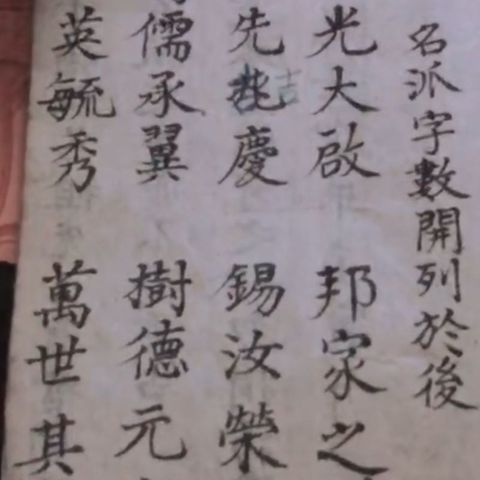 名派字數開列於後
光大啟 邦家之
先 慶 錫汝榮
儒承翼 樹德元
英毓秀 萬世其